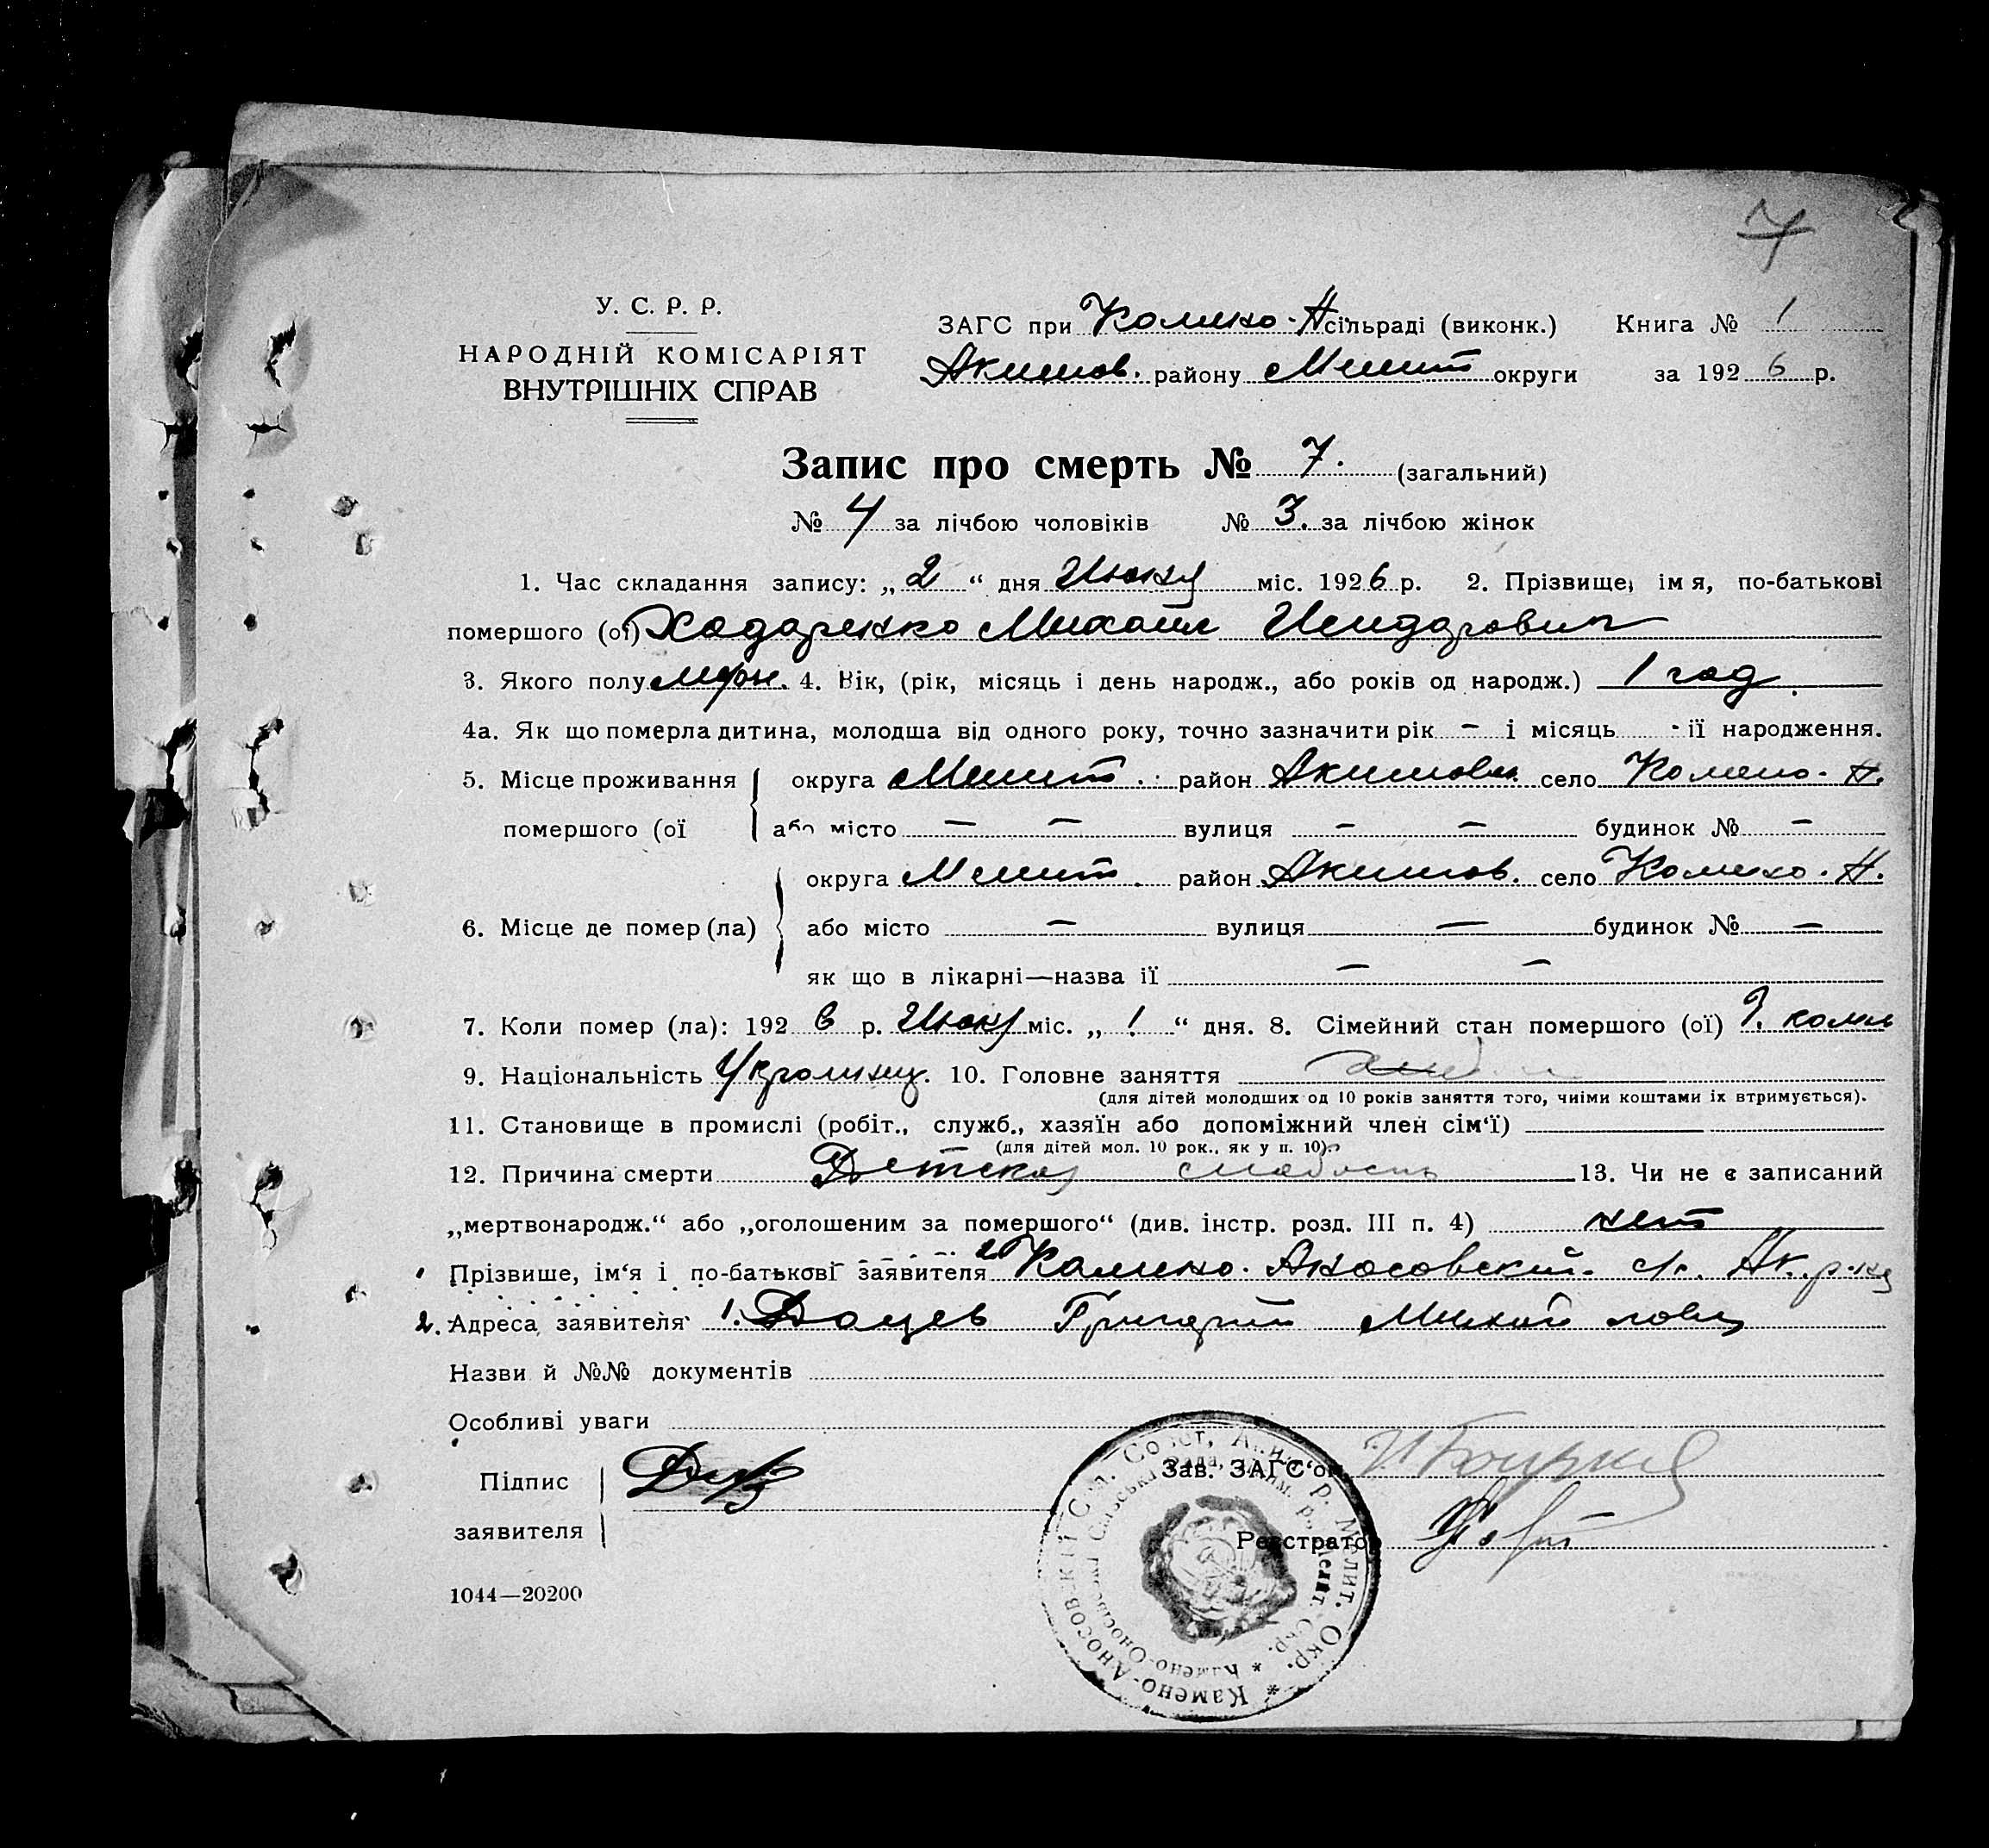 7
У. С. Р. Р.
НАРОДНІЙ КОМІСАРІЯТ
ВНУТРІШНІХ СПРАВ
ЗАГС при Камено-А сільраді (виконк.) Книга № 1
Акимов. району Мелит округи за 1926 р.
Запис про смерть № 7. (загальний)
№ 4 за лічбою чоловіків № 3. за лічбою жінок
1. Час складання запису: „2“ дня Июня міс. 1926 р. 2. Прізвище, імя, по-батькові
помершого (ої) Ходаренко Михаил
3. Якого полу муж. 4. Вік, (рік, місяць і день народж., або років од народж.) 1 год.
4а. Як що померла дитина, молодша від одного року, точно зазначити рік - і місяць - її народження.
5. Місце проживання округа Мелит. район Акимов. село Камено-А.
помершого (ої або місто — — вулиця — — будинок № —
округа Мелит. район Акимов. село Камено-А.
6. Місце де помер (ла) або місто — вулиця — будинок № —
як що в лікарні—назва її — —
7. Коли помер (ла): 1926 р. Июня міс. „1“ дня. 8. Сімейний стан помершого (ої)
9. Національність Украинец. 10. Головне заняття
(для дітей молодших од 10 років заняття того, чиїми коштами їх втримується).
11. Становище в промислі (робіт., служб., хазяїн або допоміжний член сім‘ї)
(для дітей мол. 10 рок., як у п. 10)
12. Причина смерти Детская слабость 13. Чи не є записаний
„мертвонародж.“ або „оголошеним за помершого“ (див. інстр. розд. III п. 4) нет
1 Прізвище, ім‘я і по-батькові заявителя 2 Камено-Аносовский с/с. Ак. р-на
2. Адреса заявителя 1. Дацев Григорий
Назви й №№ документів
Особливі уваги
Підпис
заявителя
Зав. ЗАГС‘ом
Реєстратор
1044—20200
* Камено-Аносовский Сел. Совет, Аким. р. Мелит. Окр.
* Камено-Оносівська Сільська Рада, Аким. р., Меліт. Окр.